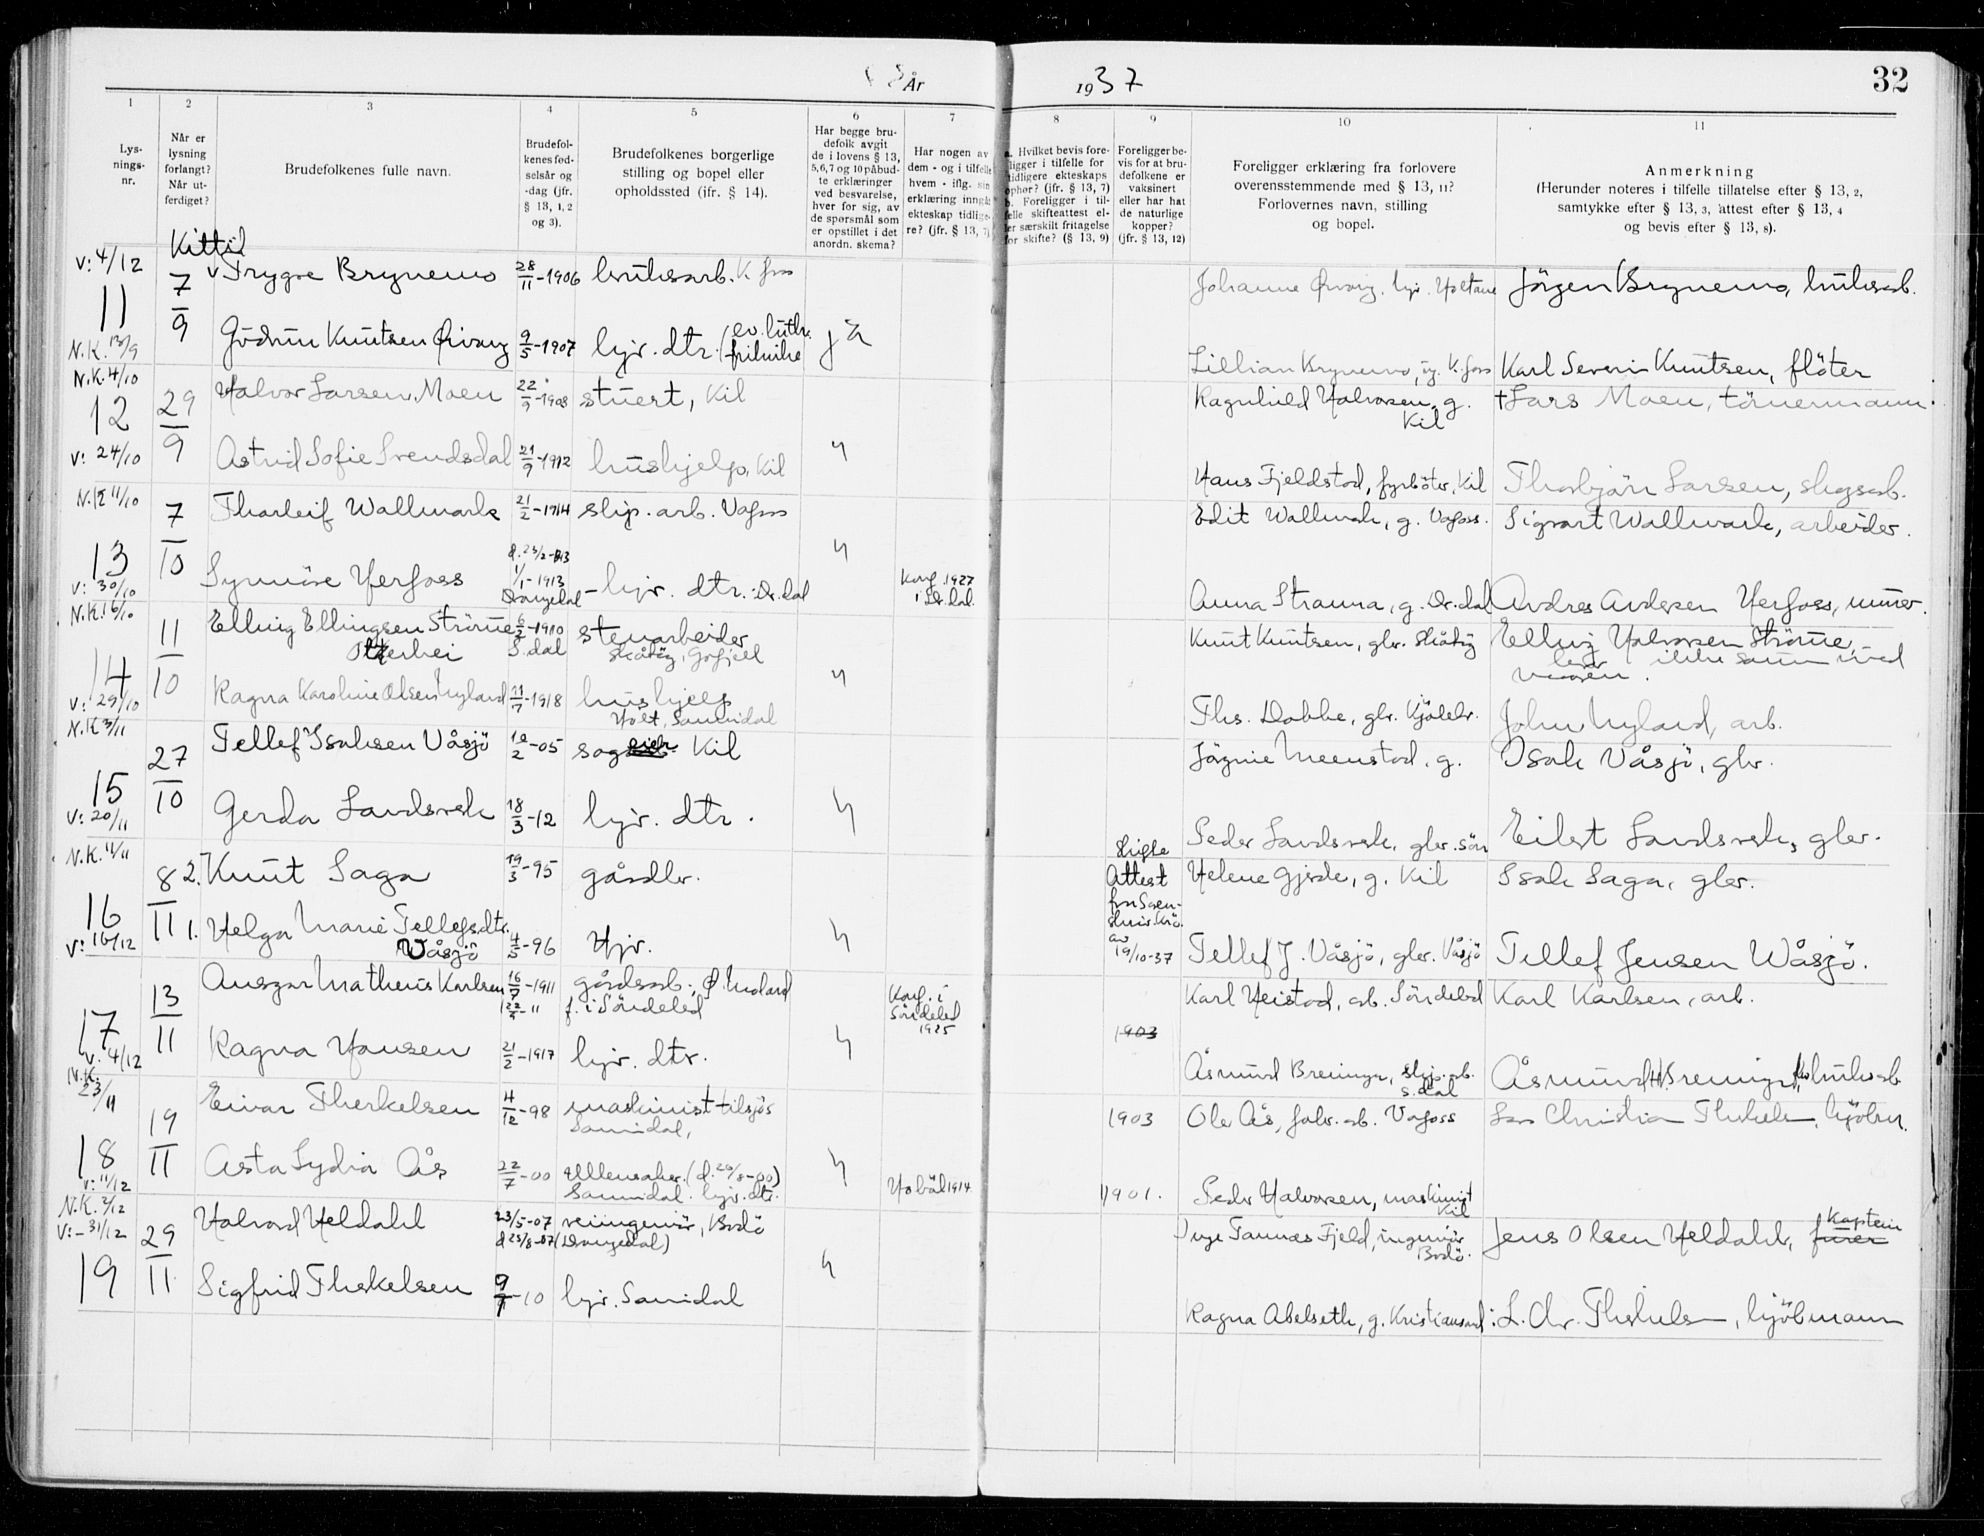 År 1937
32
1
2
3
4
5
6
7
8
9
10
11
Lys-
nings-
nr.
Når er
lysning
forlangt?
Når ut-
ferdiget?
Brudefolkenes fulle navn.
Brudefol-
kenes fød-
selsår og
-dag (jfr.
§ 13, 1, 2
og 3).
Brudefolkenes borgerlige
stilling og bopel eller
opholdssted (ifr. § 14).
Har begge bru-
defolk avgit
de i lovens § 13,
5,6,7 og 10 påbud-
te erklæringer
ved besvarelse,
hver for sig, av
de spørsmål som
er opstillet i det
anordn. skema?
Har nogen av
dem - og i tilfelle
hvem - iflg. sin
erklæring inngåt
ekteskap tidlige-
re? (jfr. § 13, 7)
a. Hvilket bevis fore-
ligger i tilfelle for
tidligere ekteskaps
ophør? (jfr. § 13, 7)
b. Foreligger i til-
felle skifteattest el-
ler særskilt fritagelse
for skifte? (§ 13, 9)
Foreligger be-
vis for at bru-
defolkene er
vaksinert
eller har hat
de naturlige
kopper?
(jfr. § 13, 12)
Foreligger erklæring fra forlovere
overensstemmende med § 13, 11?
Forlovernes navn, stilling
og bopel.
Anmerkning
(Herunder noteres i tilfelle tillatelse efter § 13, 2,
samtykke efter § 13, 3, attest efter § 13, 4
og bevis efter § 13, 8).
Kittil
V: 4/12
11
N.K. 13/9
7/9
v Trygve Brynemo 28/11-1906 bruksarb. K. foss
Johanne Qvang, hjr.
Jörgen Brynemo, bruksarb.
Gudrun Knutsen Qvang 9/5-1907 hjr. dtr. (ev. luth. frikirke
ja
Lillian Brynemo, K. foss
Karl Severin Knutsen, flöter
N.K. 4/10
12
V: 24/10
29/9
Halvor Larsen Moen 22/9-1908 stuert, Kil
Ragnhild Halvorsen, g. Kil
†Lars Moen, tömmermann.
Astrid Sofie Svendsdal 21/9-1912 hushjelp, Kil
"
Hans Fjeldstad, fyrböter, Kil
Thorbjörn Larsen, skogsarb.
N.K. 11/10
13
V: 30/10
7/10
Thorleif Wallmark 21/2-1914 slip. arb. Vafoss
Edit Wallmark, g. Vafoss.
Sigvart Wallmark, arbeider.
Synnöve Herfoss d. 23/2-13 1/1-1913 Drangedal - hjr. dtr. Dr.dal
"
Konf. 1927 i Dr.dal.
Anna Strauna, g. Dr.dal
Andres Andersen Herfoss, murer.
N.K. 16/10
14
V: 29/10
11/10
Elling Ellingsen Strömme 6/2-1910 S.dal stenarbeider
Knut Knutsen, gbr. Skåtöy
Elling Halvorsen Strömme,
Ragna Karoline Olsen Nyland 11/7-1918 hushjelp
Holt, Sannidal
"
Ths. Dobbe, gbr. Kjölebr.
John Nyland, arb.
N.K. 3/11
15
V: 20/11
27/10
Tellef Isaksen Våsjö 12/2-05 sageier Kil
g.
Isak Våsjö, gbr.
Gerda Landsverk 18/3-12 hjr. dtr.
"
Peder Landsverk, gbr. sön
Eilert Landsverk, gbr.
N.K. 11/11
16
V: 16/12
8/11
2. Knut Saga 19/3-95 gårdbr.
Skifte
Attest
av
19/10-37
Helene Gjerde, g. Kil
Isak Saga, gbr.
1. Helga Marie Tellefsdtr. Våsjö 4/5-96 Hjr.
"
Tellef J. Våsjö, gbr. Våsjö
Tellef Jensen Wåsjö.
17
V: 4/12
13/11
Ansgar Matheus Karlsen 16/7-1911 gårdsarb., Ö. Moland
f. i Söndeled
Konf. i Söndeled 1925
Karl Heistad, arb. Söndeled
Karl Karlsen, arb.
1903
Ragna Hansen 21/2-1917 hjr. dtr.
"
Åsmund Breninger, slip.arb. S.dal
N.K. 23/11
18
V: 11/12
19/11
Einar Therkelsen 4/12-98 maskinist tilsjös
Sannidal,
1903
Ole Ås, fabr.arb. Vafoss
Lars Christian Therkelsen, kjöbm.
Asta Lydia Ås 22/7-00 Ullensaker. (d. 26/8-00)
Sannidal. hjr. dtr.
"
1914
1901.
Peder Halvorsen, maskinist Kil
N.K. 2/12
V: - 31/12
19
29/11
Halvard Heldahl 23/5-07 veiingeniör, Bodö
d 25/8-07 (Drangedal)
Inge Tannæs Fjeld, ingeniör Bodö.
Jens Olsen Heldahl, Kaptein
Sigfrid Therkelsen 9/7-10 hjr. Sannidal
"
Ragna Abelseth, g. Kristiansand
L. Chr. Therkelsen, kjöbmann